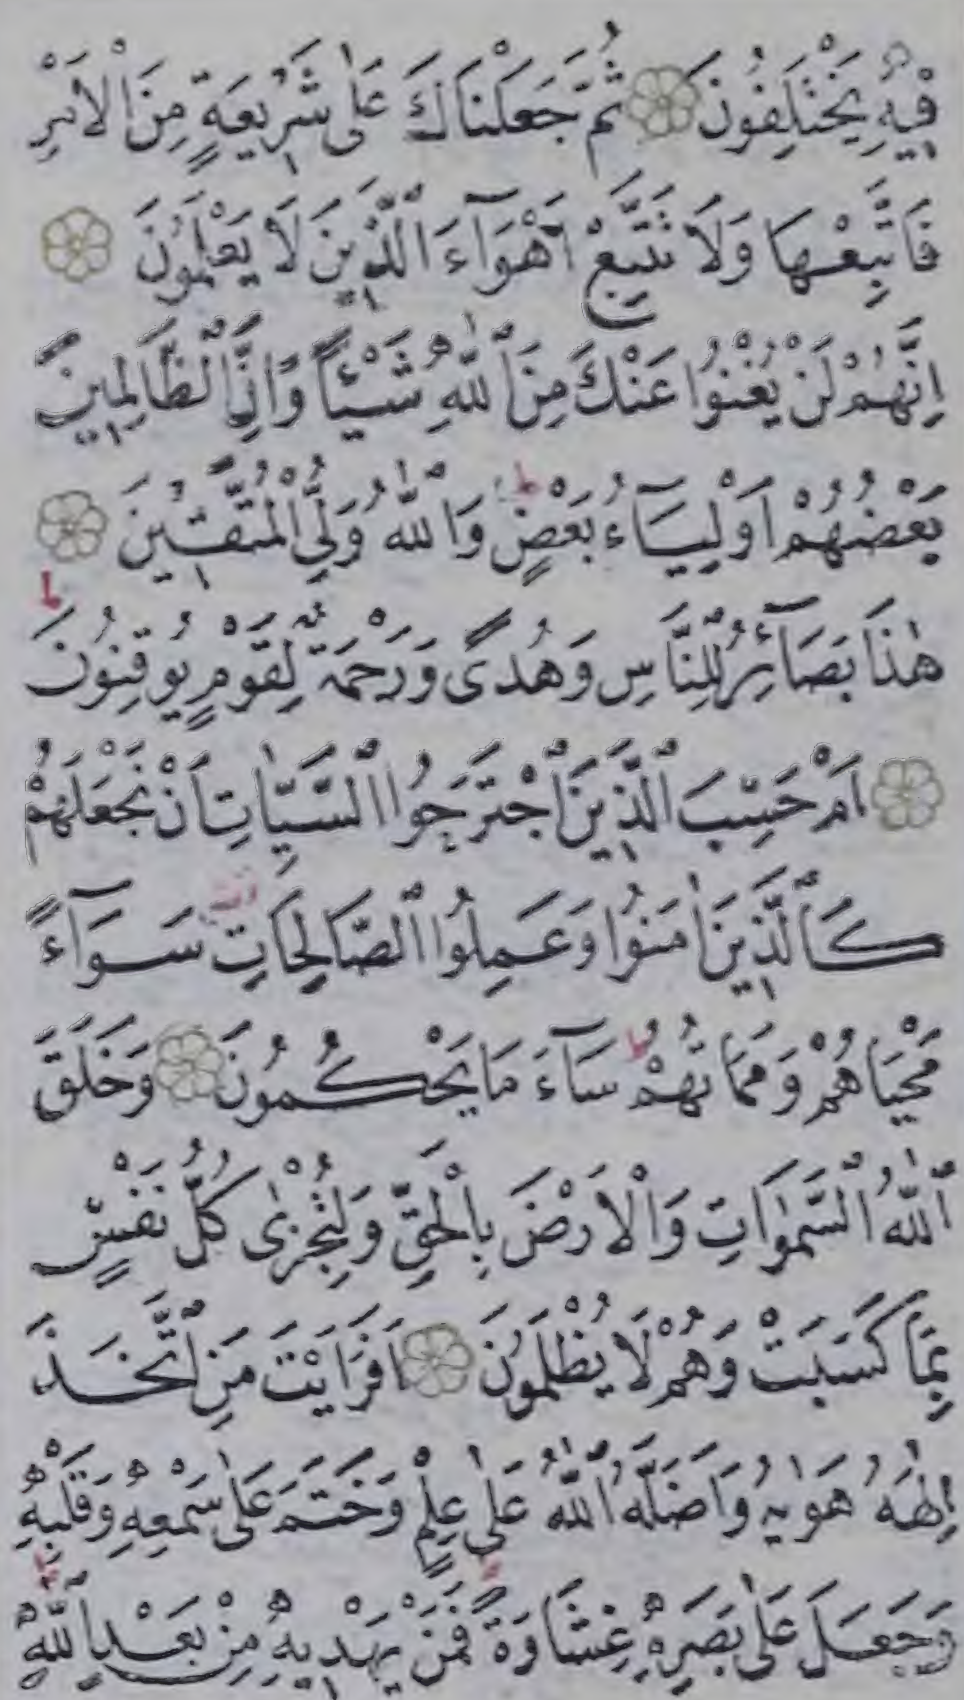 فِيهِ يَخْتَلِفُونَ ثُمَّ جَعَلْنَاكَ عَلٰى شَرِيعَةٍ مِنَ الْاَمْرِ
فَاتَّبِعْهَا وَلَا تَتَّبِعْ اَهْوَٓاءَ الَّذِينَ لَا يَعْلَمُونَ
اِنَّهُمْ لَنْ يُغْنُوا عَنْكَ مِنَ اللّٰهِ شَيْـًٔا وَاِنَّ الظَّالِمِينَ
بَعْضُهُمْ اَوْلِيَٓاءُ بَعْضٍ ط وَاللّٰهُ وَلِيُّ الْمُتَّقِينَ
هٰذَا بَصَٓائِرُ لِلنَّاسِ وَهُدًى وَرَحْمَةٌ لِقَوْمٍ يُوقِنُونَ ط
اَمْ حَسِبَ الَّذِينَ اجْتَرَحُوا السَّيِّـَٔاتِ اَنْ نَجْعَلَهُمْ
كَالَّذِينَ اٰمَنُوا وَعَمِلُوا الصَّالِحَاتِ سَوَٓاءً
مَحْيَاهُمْ وَمَمَاتُهُمْ ط سَٓاءَ مَا يَحْكُمُونَ وَخَلَقَ
اللّٰهُ السَّمٰوَاتِ وَالْاَرْضَ بِالْحَقِّ وَلِتُجْزٰى كُلُّ نَفْسٍ
بِمَا كَسَبَتْ وَهُمْ لَا يُظْلَمُونَ اَفَرَاَيْتَ مَنِ اتَّخَذَ
اِلٰهَهُ هَوٰيهُ وَاَضَلَّهُ اللّٰهُ عَلٰى عِلْمٍ وَخَتَمَ عَلٰى سَمْعِهِ وَقَلْبِهِ
وَجَعَلَ عَلٰى بَصَرِهِ غِشَاوَةً فَمَنْ يَهْدِيهِ مِنْ بَعْدِ اللّٰهِ